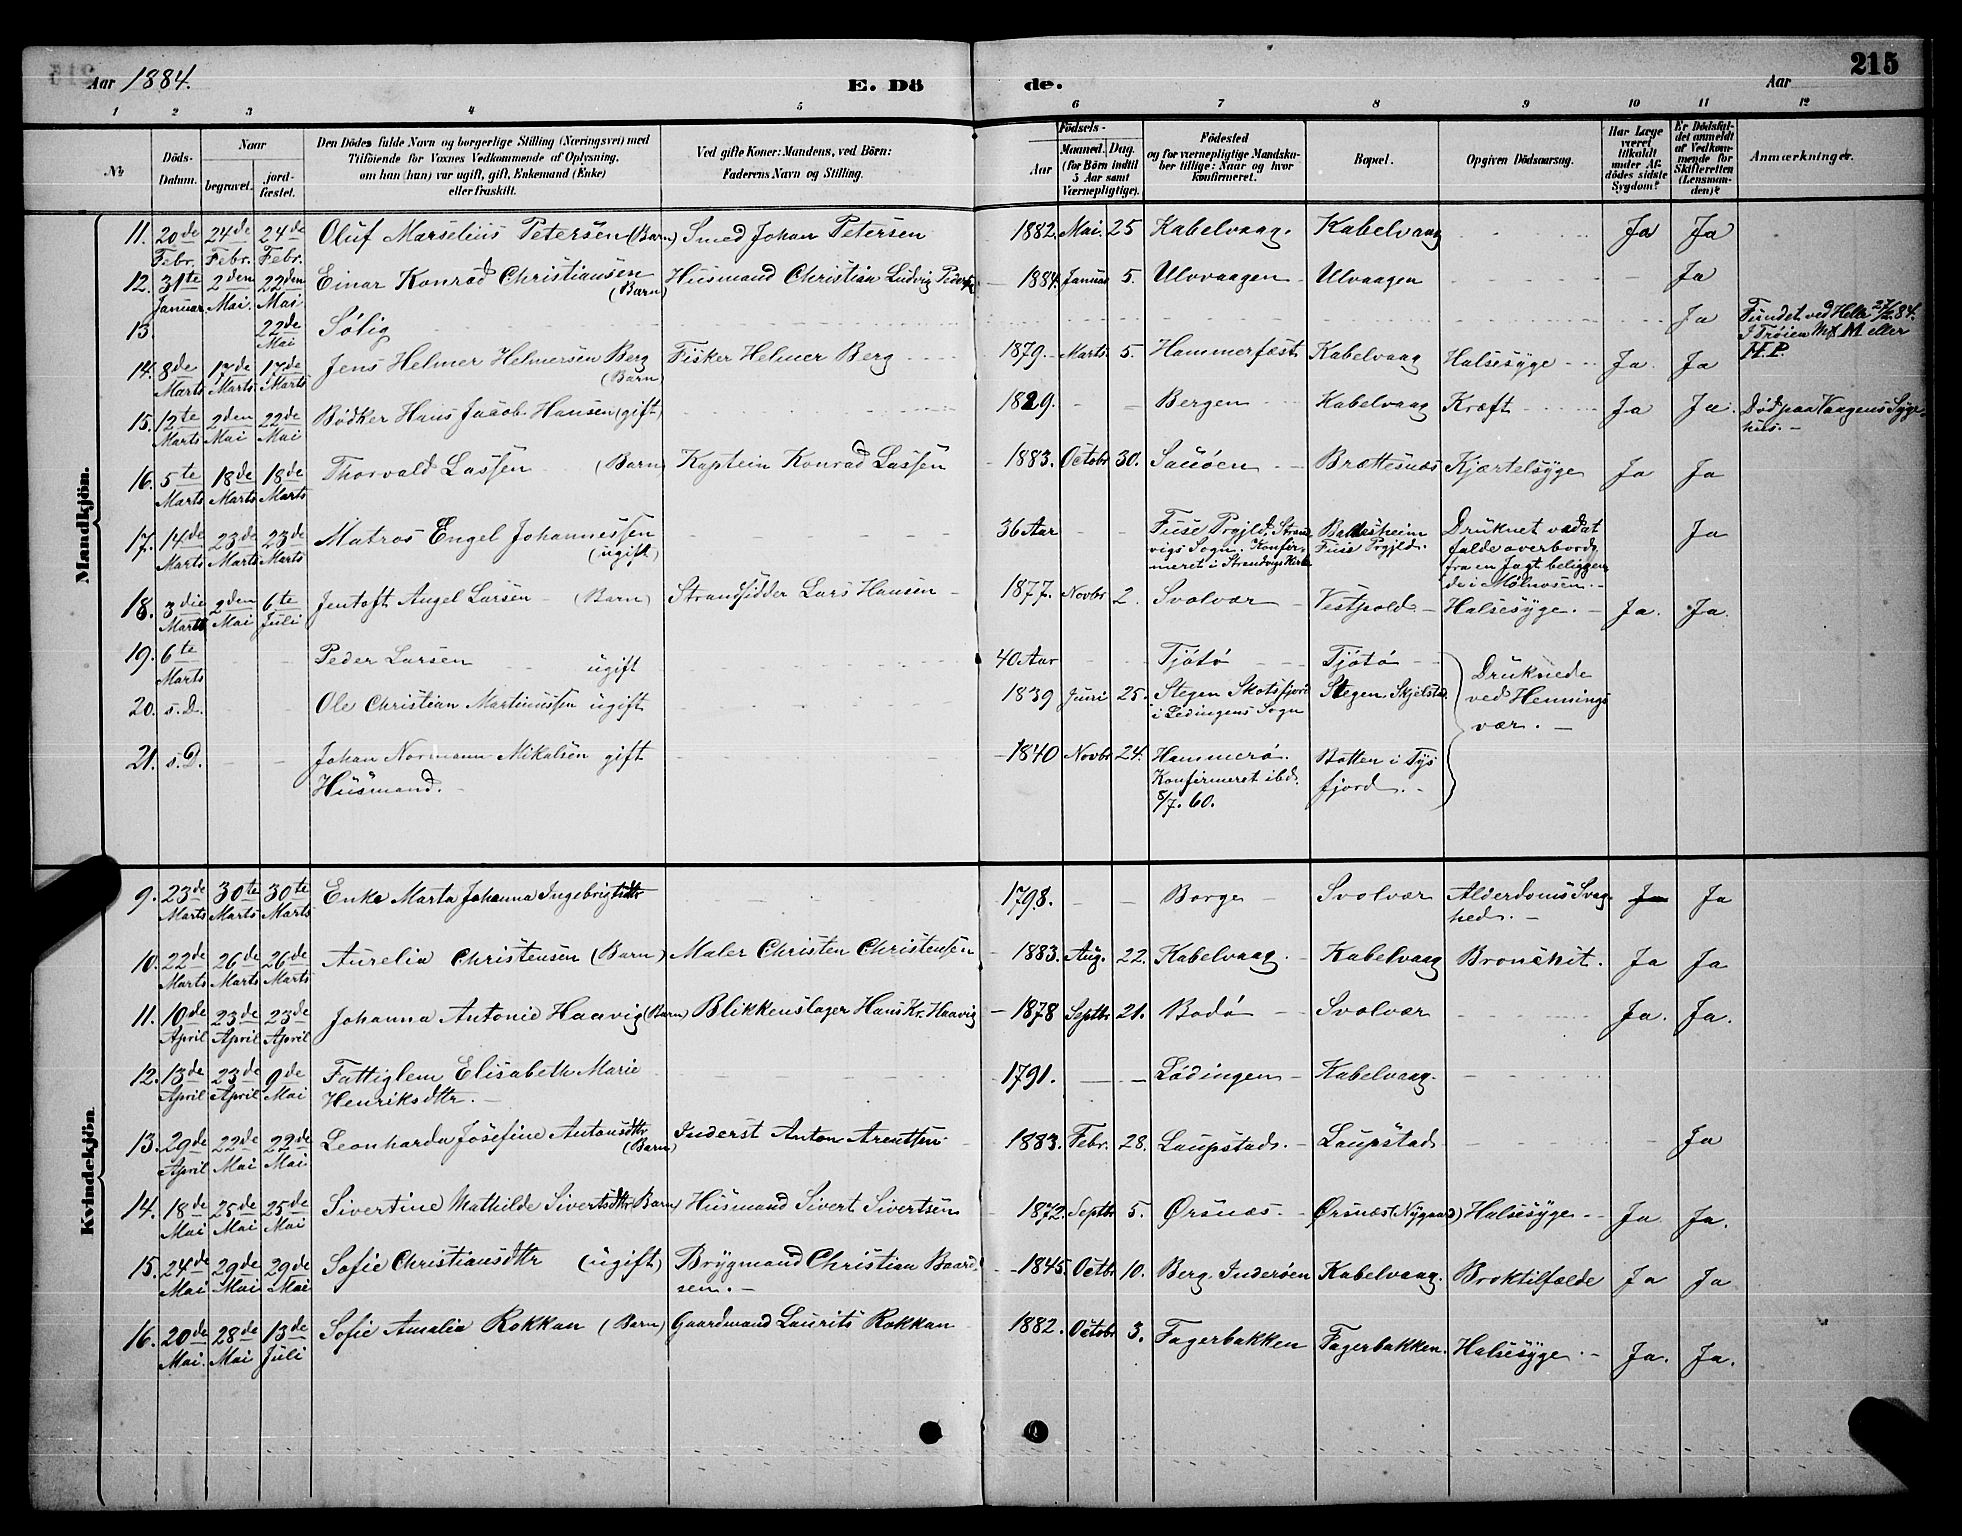 215
Aar 1884.
E. Dö de.
Aar
1 2 3 4 5 6 7 8 9 10 11 12
No
Döds-Datum.
Naar
begravet.
jord-fæstet.
Den Dödes fulde Navn og borgerlige Stilling (Næringsvei) med
Tilföiende for Voxnes Vedkommende af Oplysning,
om han (hun) var ugift, gift, Enkemand (Enke)
eller fraskilt.
Ved gifte Koner: Mandens, ved Börn:
Faderens Navn og Stilling.
Födsels-
Aar
Maaned. Dag.
(for Börn indtil
5 Aar samt
Værnepligtige).
Födested
og for værnepligtige Mandska-
ber tillige: Naar og hvor
konfirmeret.
Bopæl.
Opgiven Dödsaarsag.
Har Læge
været
tilkaldt
under Af-
dödes sidste
Sygdom?
Er Dödsfal-
det anmeldt
af Vedkom-
mende for
Skifteretten
(Lensman-
den)?
Anmærkninger.
Mandkjön.
11. 20de Febr. 24de Febr. 24de Febr. Oluf Marselius Petersen (Barn) Smed Johan Petersen 1882. Mai. 25 Kabelvaag. Kabelvaag Ja Ja
12. 31te Januar 2den Mai. 22den Mai Einar Konrad Christiansen (Barn) Husmand Christian Ludvig Peders 1884. Januar 5. Ulvvaagen Ulvaagen Ja
13. 22de Mai Sølig Ja Fundet ved Helle 27/2 84.
I Trøien Mrk M eller
H.P.
14. 8de Marts 17de Marts 17de Marts Jens Helmer Helmersen Berg (Barn) Fisker Helmer Berg 1879. Marts. 5. Hammerfæst Kabelvaag Halsesyge Ja. Ja
15. 12te Marts 2den Mai 22de Mai Bødker Hans Jacob Hansen (gift) 1829. Bergen Kabelvaag Kræft Ja Ja. Død paa Vaagens Syge-
hus.
16. 5te Marts 18de Marts 18de Marts Thorvald Lassen (Barn) Kaptein Konrad Lassen 1883. Octobr 30. Sauøen Brættesnæs Kjertelsyge Ja Ja
17. 14de Marts 23de Marts 23de Marts Matros Engel Johannessen (ugift) 36 Aar Fuse Prgjld, Strand
vigs Sogn. Konfir-
meret i Strandvigs Kirke Baldesheim
Fuse Prgjld. Druknet ved at
falde overbord
fra en Jagt beliggen
de i Molnosen. Ja
18. 3die Marts 2den Mai 6te Juli Jentoft Angel Larsen (Barn) Strandsidder Lars Hansen 1877. Novbr 2. Svolvær Vestpold Halsesyge. Ja. Ja.
19. 6te Marts Peder Larsen ugift 40 Aar Tjøtø Tjøtø Druknede
ved Hennings
vær.
20. s.D. Ole Christian Martinussen ugift 1839 Juni 25. Stegen Skotsfjord
i Lødingens Sogn Stegen Skjelstad
21. s.D. Johan Normann Mikalsen gift
Husmand. 1840 Novbr 24. Hammerø.
Konfirmeret ibd.
8/7. 60. Botten i Tys
fjord.
Kvindekjön.
9. 23de Marts 30te Marts 30te Marts Enke Marta Johanna Ingebrigtsdtr 1798. Borge Svolvær Alderdoms Svag
hed. Ja Ja
10. 22de Marts 26de Marts 26de Marts Aurelia Christensen (Barn) Maler Christen Christensen 1883. Aug. 22. Kabelvaag. Kabelvaag Bronchit. Ja Ja
11. 10de April 23de April 23de April Johanna Antonie Haavig (Barn) Blikkenslager Hans Kr. Haavig 1878 Septbr 21. Bodø Svolvær Ja. Ja.
12. 13de April 23de April 9de Mai Fattiglem Elisabeth Marie
Henriksdtr. 1791. Lødingen Kabelvaag.
13. 29de April 22de Mai 22de Mai Leonharda Josefine Antonsdtr (Barn) Inderst Anton Arentsen 1883. Febr. 28. Laupstad. Laupstad Ja
14. 18de Mai 25de Mai 25de Mai Sivertine Mathilde Sivertsdtr (Barn) Husmand Sivert Sivertsen 1872. Septbr 5. Ørsnæs. Ørsnæs (Nygaard) Halsesyge Ja Ja.
15. 24de Mai 29de Mai 29de Mai Sofie Christiansdtr (ugift) Brygmand Christian Baard
sen. 1845. Octbr 10. Berg. Inderøen Kabelvaag. Broktilfælde Ja Ja
16. 20de Mai. 28de Mai 13de Juli Sofie Amalia Rokkan (Barn) Gaardmand Laurits Rokkan 1882. Octobr 3. Fagerbakken Fagerbakken. Halsesyge. Ja. Ja.